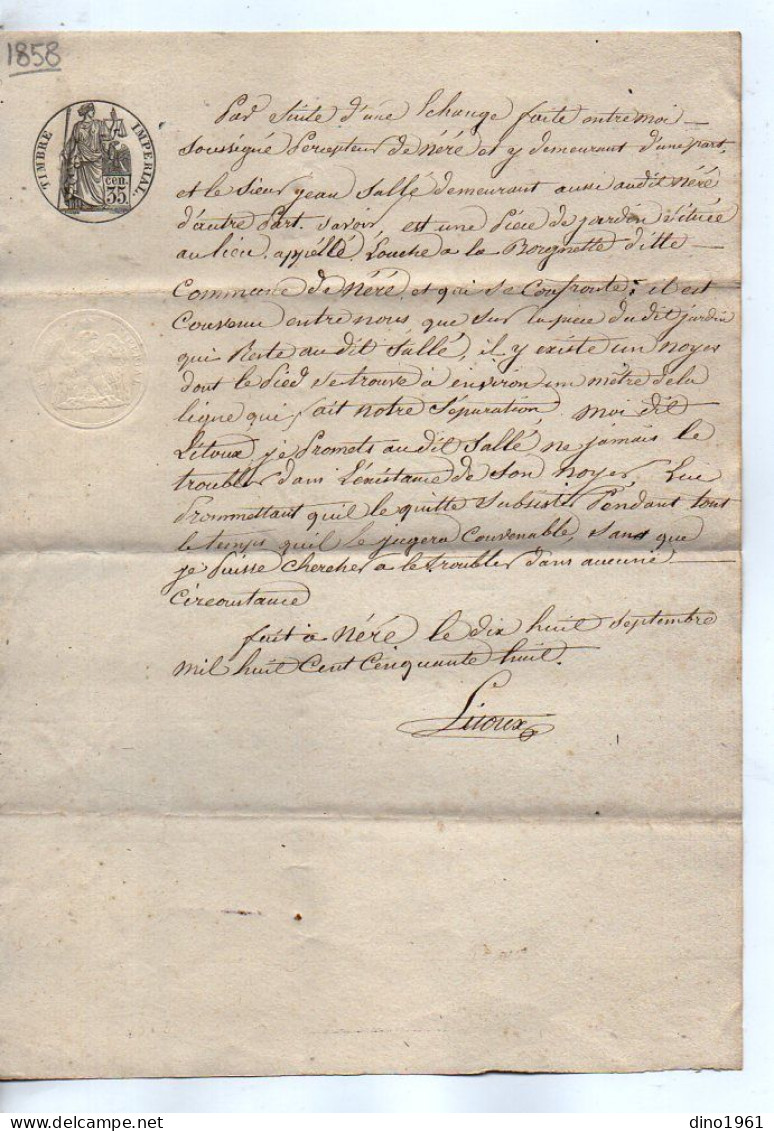 1858
TIMBRE IMPERIAL.
35 cen.
Par suite d'une Echange faite entre moi
soussigné Percepteur de Néré et y demeurant d'une part,
et le sieur jean Sallé demeurant aussi audit Néré
d'autre Part. savoir, est une Piéce de jardin située
au lieu appéllé Louche a la Borgnette ditte
Commune de Néré, et qui se Confronte; il est
Convenu entre nous, que sur la piece du dit jardin
qui Reste au dit Sallé, il y existe un noyer
dont le Pied se trouve à environ un métre de la
ligne qui fait notre séparation. moi dit
Litoux, je Promets au dit Sallé, ne jamais le
troubler dans L'éxistance de son noyer, Lui
Prommettant qu'il le quitte subsister Pendant tout
le temps qu'il le jugera Convenable, sans que
je Puisse chercher a le troubler dans aucune
Circonstance
fait à Néré le dix huit septembre
mil huit Cent Cinquante huit.
Litoux
dino1961